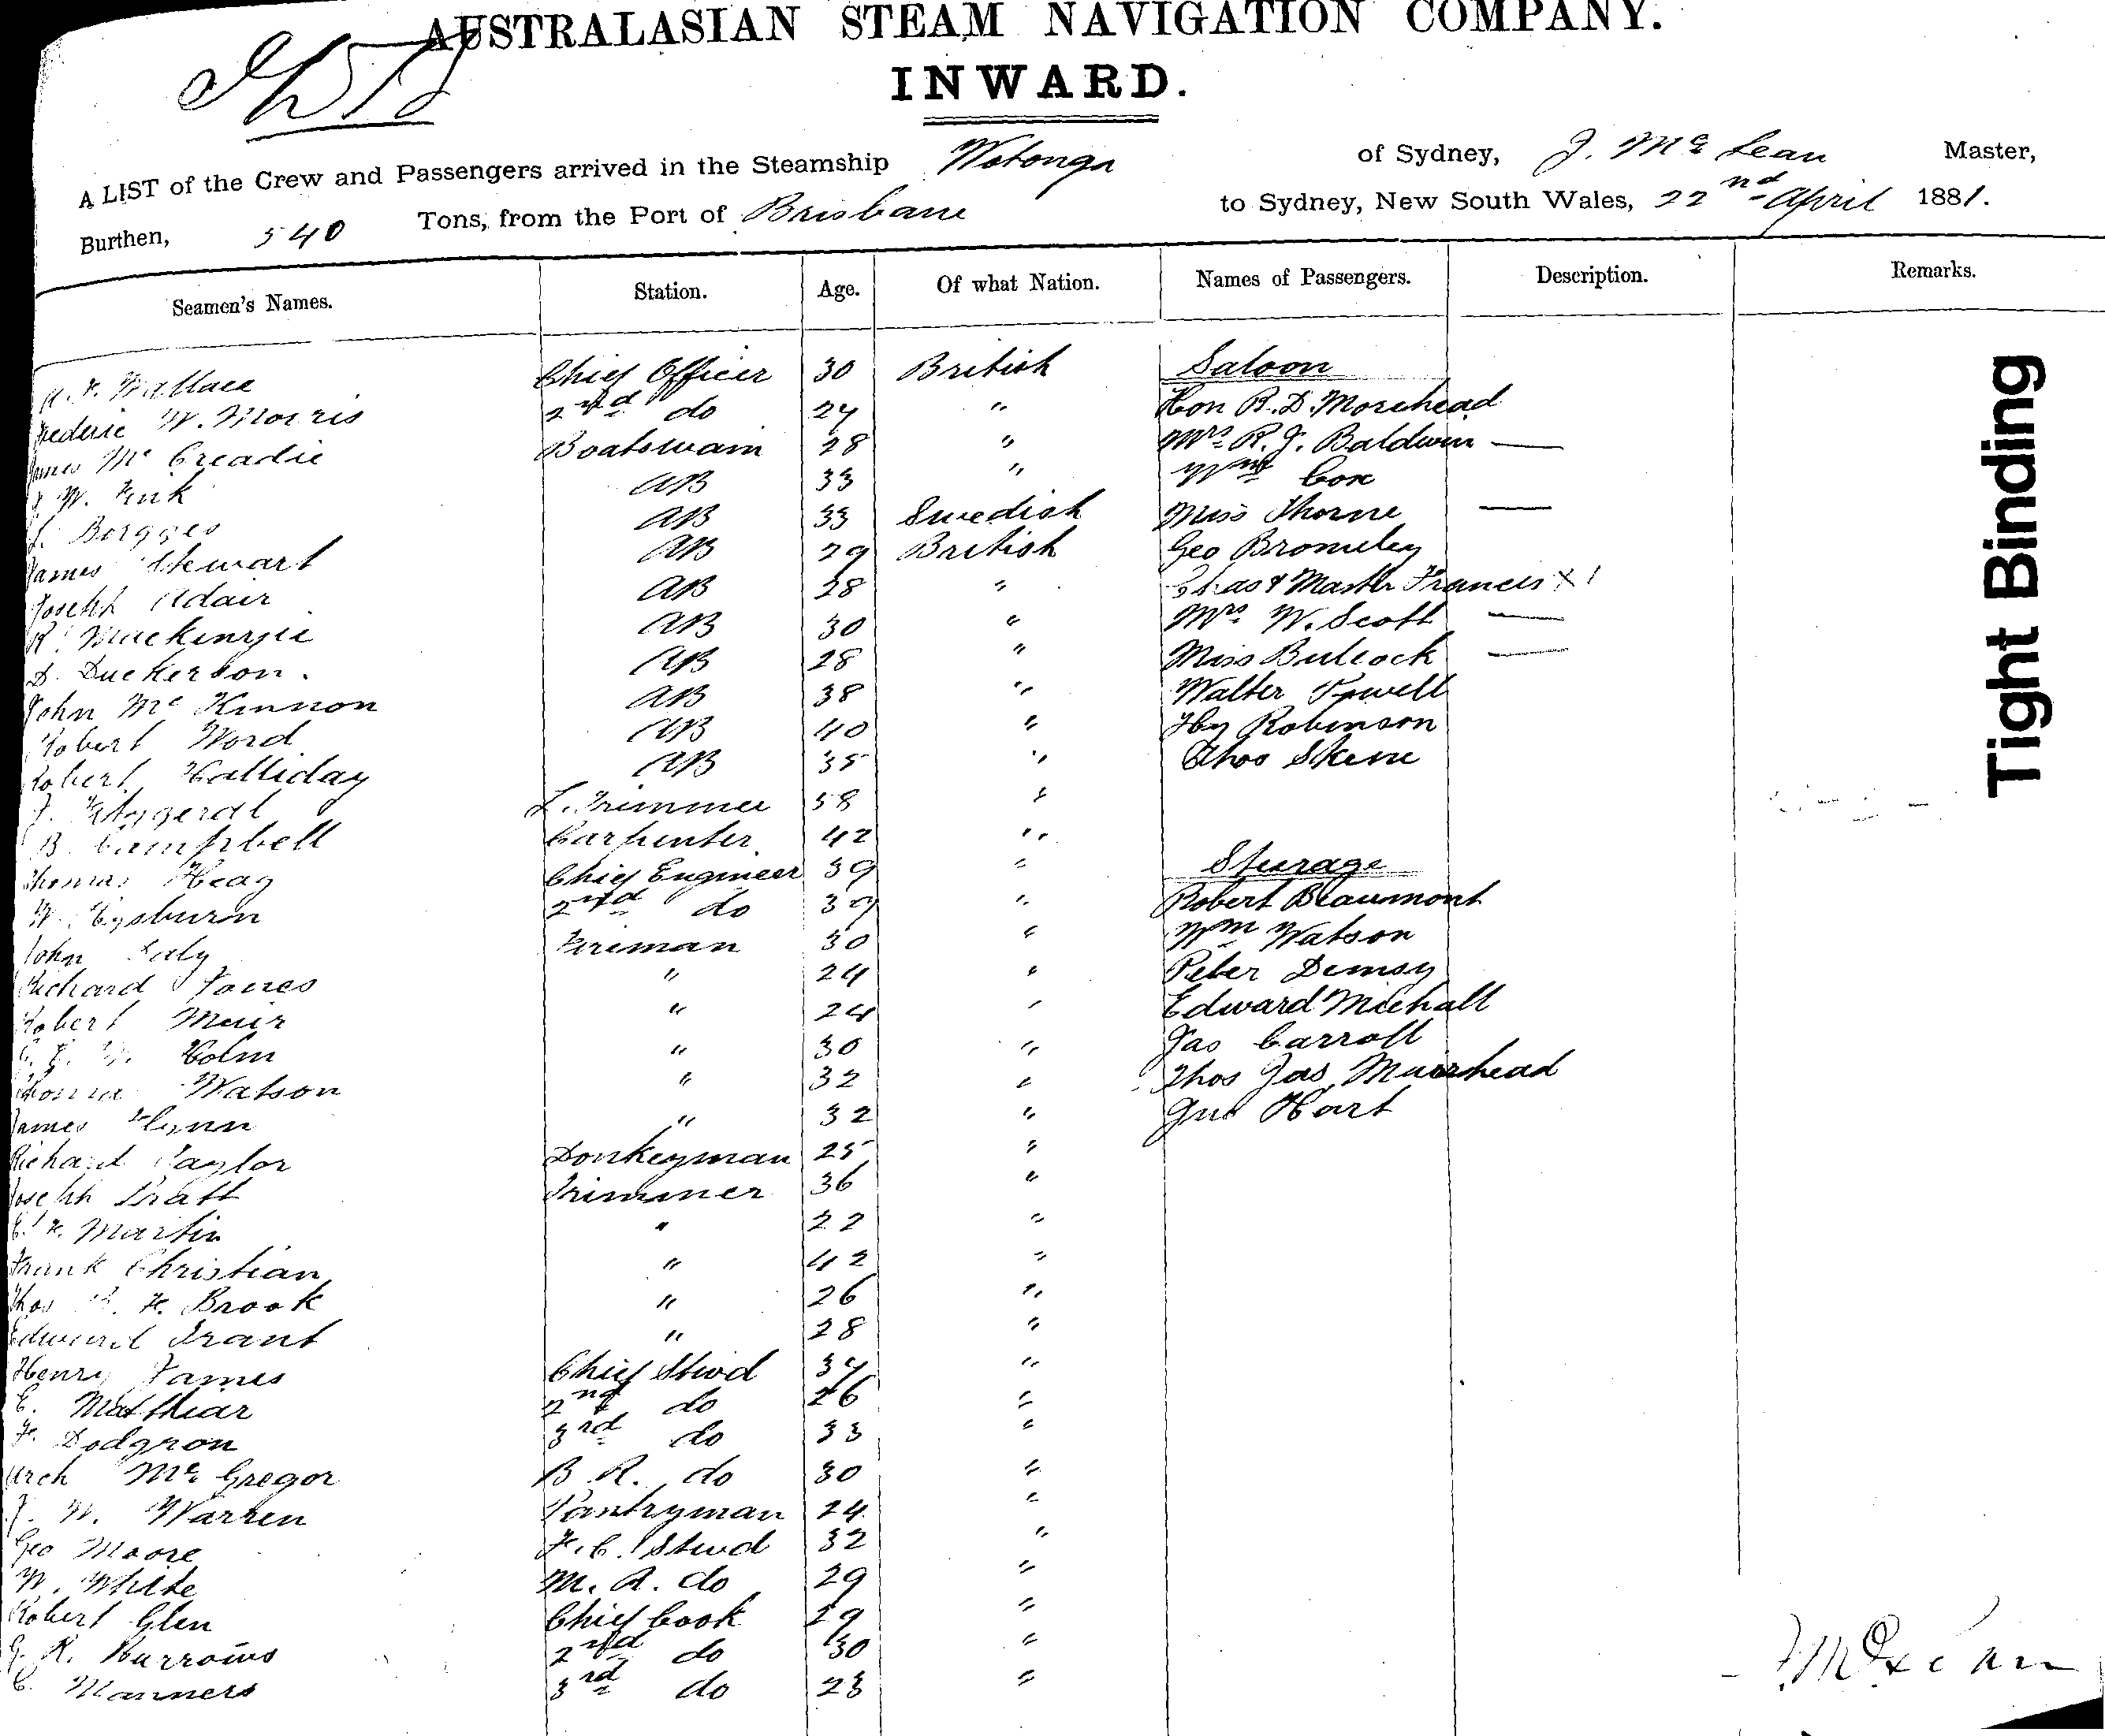 AUSTRALASIAN STEAM NAVIGATION COMPANY.
INWARD.
A LIST of the Crew and Passengers arrived in the Steamship Wotonga of Sydney, J. McLean Master,
Burthen, 540 Tons, from the Port of Brisbane to Sydney, New South Wales, 22nd April 1881.
Seamen's Names. Station. Age. Of what Nation. Names of Passengers. Description. Remarks.
Wallace Chief Officer 30 British Saloon
Frederic W. Morris 2nd do 27 " Hon B. D. Morehead
James McCreadie Boatswain 28 " Mrs R. J. Baldwin —
W. Fink AB 33 " Wm Cox
Borgges AB 33 Swedish Miss Thorne —
James Stewart AB 29 British Geo Bromeley
Joseph Adair AB 28 " Chas & Master Francis X 1
R. Mackenzie AB 30 " Mrs W. Scott —
D. Duckerson. AB 28 " Miss Bulcock —
John McKinnon AB 38 " Walter Powell
Robert Word AB 40 " Hy Robinson
Robert Halliday AB 35 " Thos Skene
Fitzgerald L. Trimmer 58 "
B. Campbell Carpenter 42 "
Thomas Heag Chief Engineer 39 " Steerage
W. 2nd do 39 " Robert Beaumont
John Daly Fireman 30 " Wm Watson
Richard Jones " 24 " Peter Demsy
Robert Muir " 24 " Edward Miehall
Holm " 30 " Jas Carroll
Thomas Watson " 32 " Thos Jas Muirhead
James Flynn " 32 " Jno Hart
Richard Taylor Donkeyman 25 "
Joseph Pratt Trimmer 36 "
C. F. Martin " 22 "
Frank Christian " 42 "
Thos H. Brook " 26 "
Edward Grant " 28 "
Henry James Chief Stwd 37 "
C. Matthiar 2nd do 26 "
F. Dodgson 3rd do 33 "
Arch McGregor B. R. do 30 "
J. W. Warren Pantryman 24 "
Geo Moore F. C. Stwd 32 "
W. White M. R. do 29 "
Robert Glen Chief Cook 29 "
G. R. Burrows 2nd do 30 "
C. Manners 3rd do 23 "
J McLean
Tight Binding